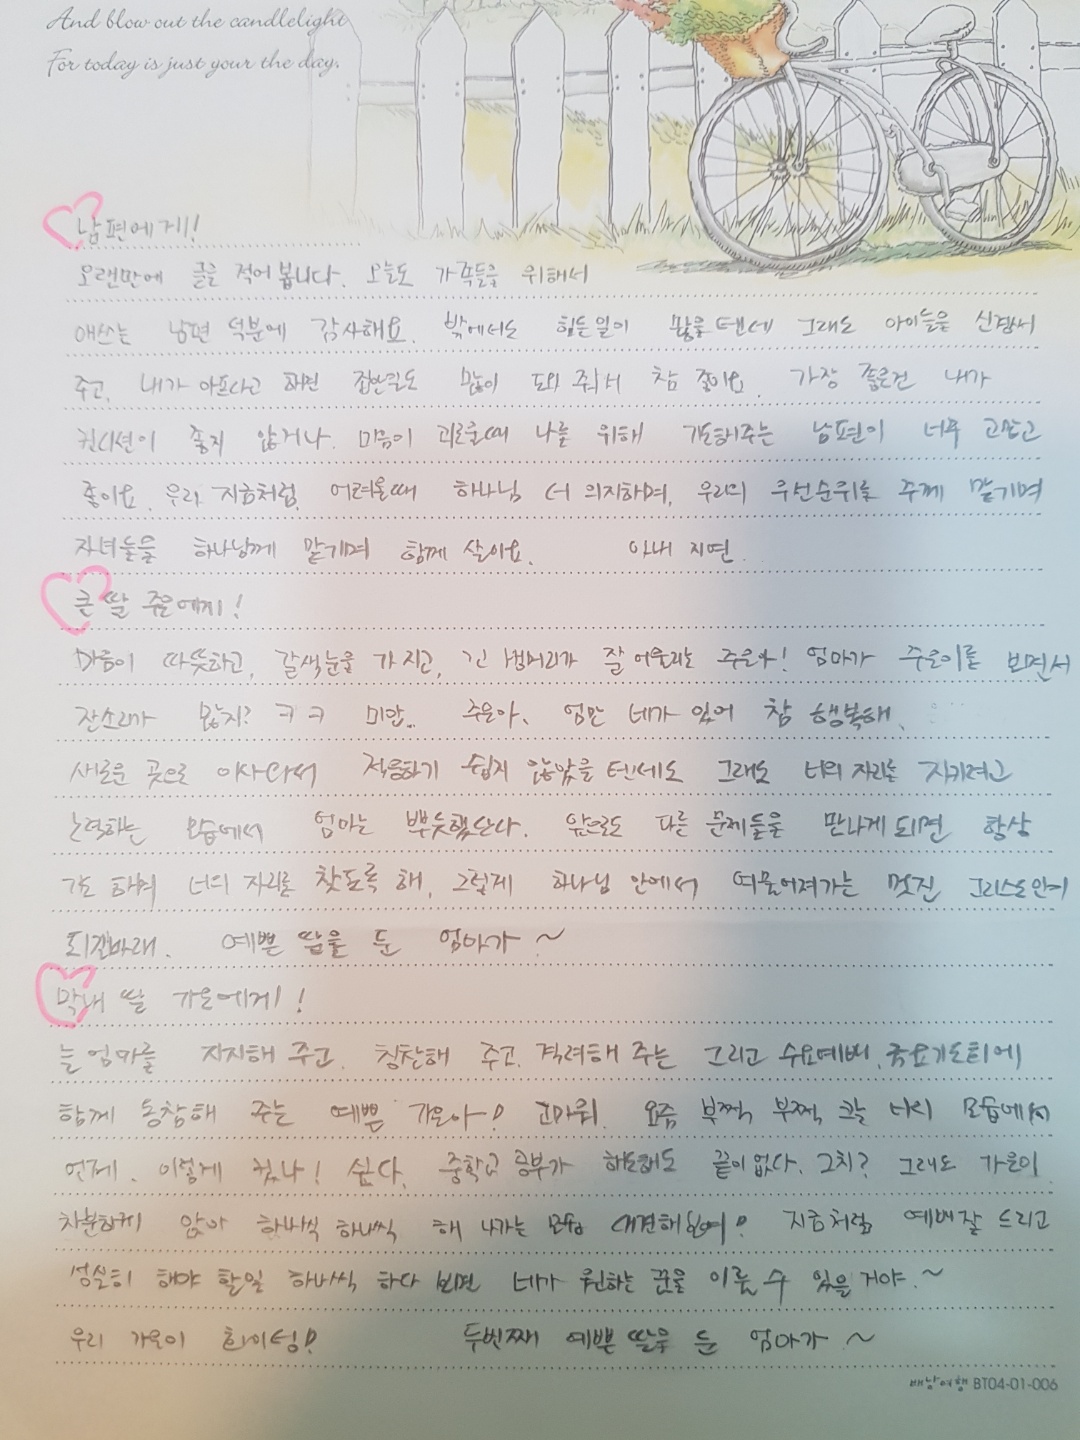 And blow out the candlelight
For today is just your the day.
남편에게!
오랜만에 글을 적어봅니다. 오늘도 가족들을 위해서
애쓰는 남편 덕분에 감사해요. 밖에서도 힘든일이 많을텐데 그래도 아이들을 신경써
주고, 내가 아프다고 하면 집안일도 많이 도와줘서 참 좋아요. 가장 좋은건 내가
컨디션이 좋지 않거나. 마음이 괴로울때 나를 위해 기도해주는 남편이 너무 고맙고
좋아요. 우리 지금처럼, 어려울때 하나님 더 의지하며, 우리의 우선순위를 주께 맡기며
자녀들을 하나님께 맡기며 함께 살아요. 아내 지연.
큰 딸 주은에게!
마음이 따뜻하고, 갈색눈을 가지고, 긴 생머리가 잘 어울리는 주은아! 엄마가 주은이를 보면서
잔소리가 많지? ㅋㅋ 미안.. 주은아. 엄만 네가 있어 참 행복해.
새로운 곳으로 이사와서 적응하기 쉽지 않았을텐데도 그래도 너의 자리를 지키려고
노력하는 모습에서 엄마는 뿌듯했단다. 앞으로도 다른 문제들을 만나게되면 항상
기도하며 너의 자리를 찾도록 해, 그렇게 하나님 안에서 여물어져가는 멋진 그리스도인이
되길바래. 예쁜 딸을 둔 엄마가 ~
막내 딸 가은에게!
늘 엄마를 지지해 주고. 칭찬해 주고. 격려해 주는 그리고 수요예배, 금요기도회에
함께 동참해 주는 예쁜 가은아! 고마워. 요즘 부쩍 부쩍 큰 너의 모습에서
언제. 이렇게 컸나! 싶다. 중학교 공부가 해도해도 끝이없다. 그치? 그래도 가은이
차분하게 앉아 하나씩 하나씩 해 나가는 모습 대견해보여! 지금처럼 예배잘 드리고
성실히 해야 할일 하나씩 하다 보면 네가 원하는 꿈을 이룰 수 있을거야.~
우리 가은이 화이팅! 두번째 예쁜 딸을 둔 엄마가 ~
배낭여행 BT04-01-006